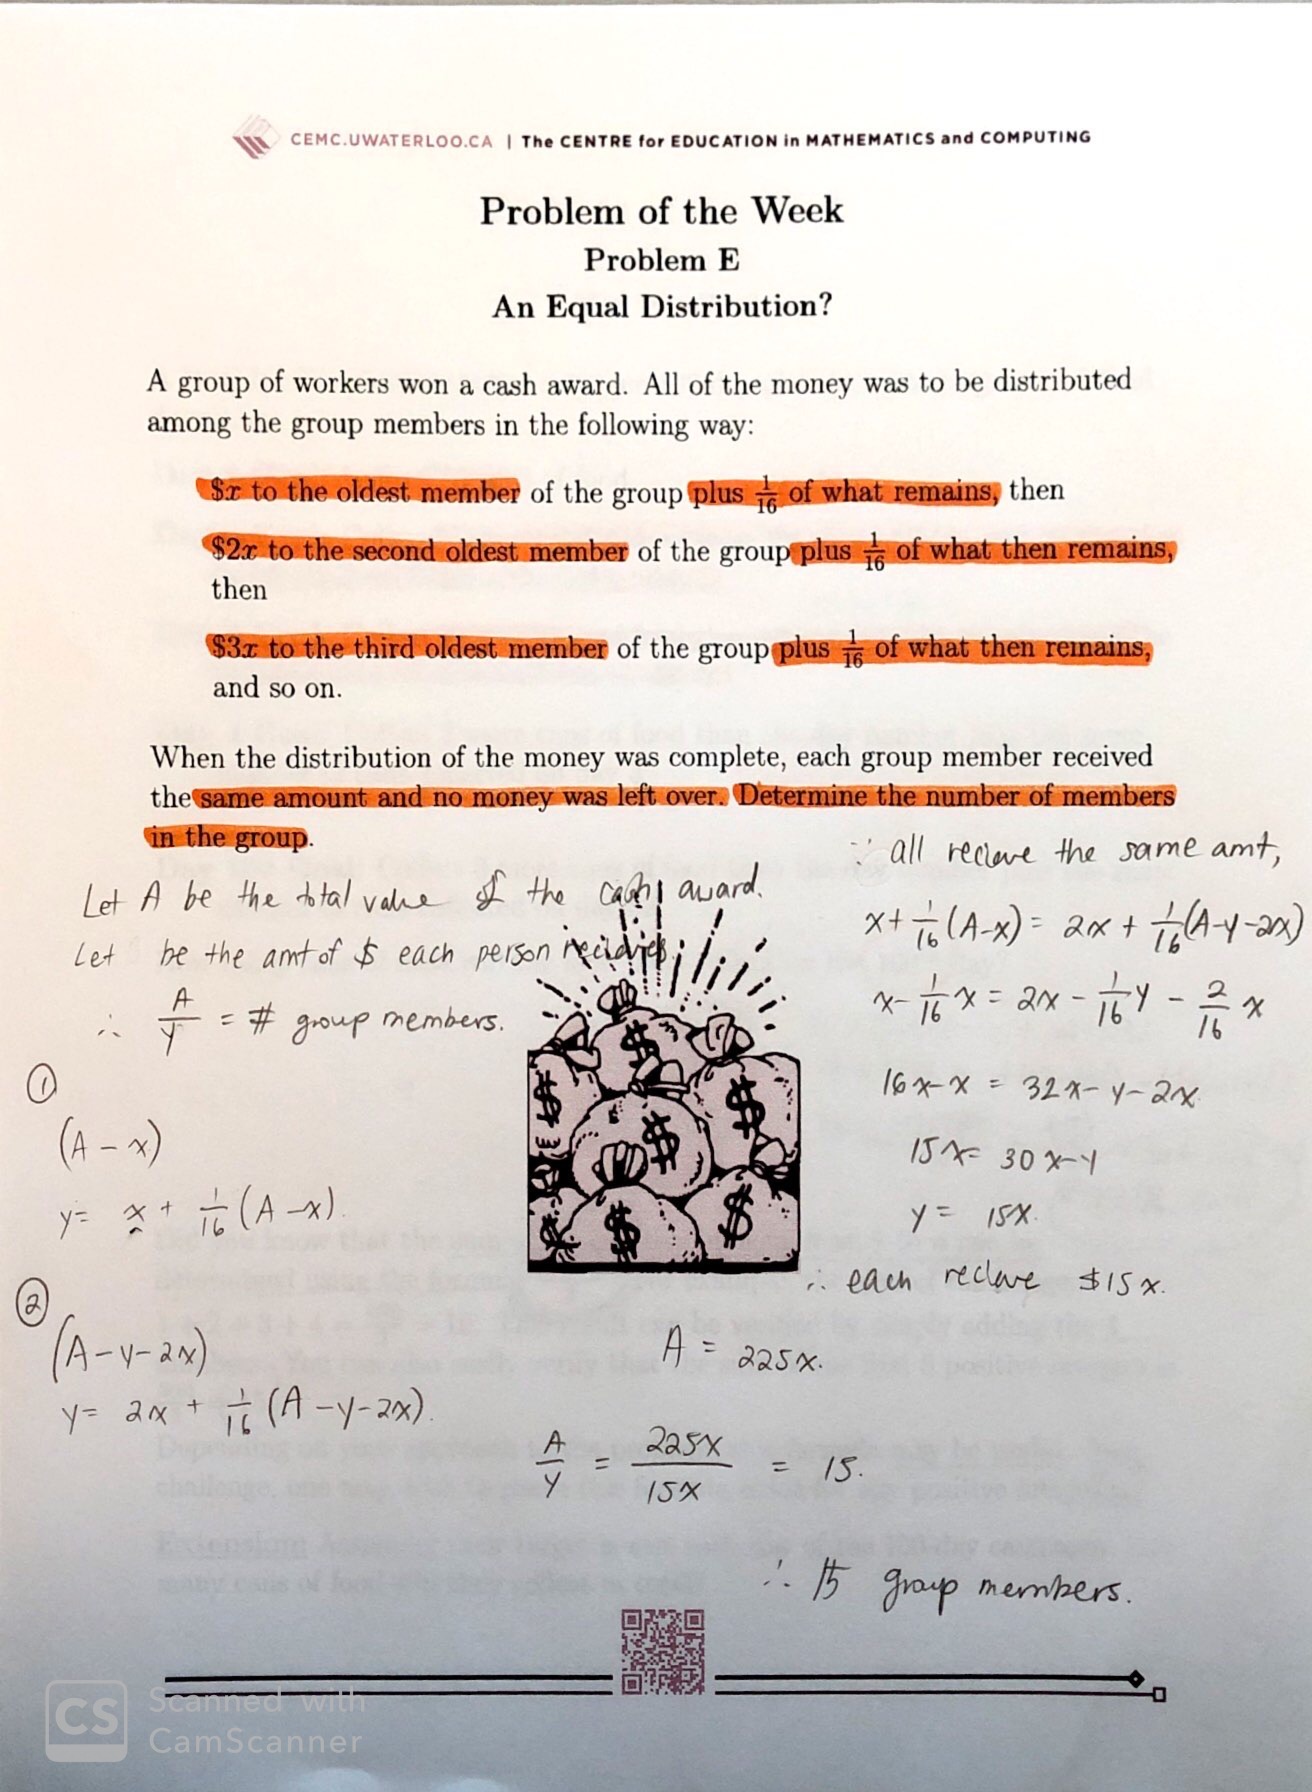 CEMC.UWATERLOO.CA | The CENTRE for EDUCATION in MATHEMATICS and COMPUTING
Problem of the Week
Problem E
An Equal Distribution?
A group of workers won a cash award. All of the money was to be distributed
among the group members in the following way:
$x to the oldest member of the group plus 1/16 of what remains, then
$2x to the second oldest member of the group plus 1/16 of what then remains,
then
$3x to the third oldest member of the group plus 1/16 of what then remains,
and so on.
When the distribution of the money was complete, each group member received
the same amount and no money was left over. Determine the number of members
in the group.
Let A be the total value of the cash award.
Let be the amt of $ each person
∴ A/y = # group members.
①
(A - x)
y = x + 1/16 (A - x).
②
(A - y - 2x)
y = 2x + 1/16 (A - y - 2x).
∵ all recieve the same amt,
x + 1/16 (A - x) = 2x + 1/16 (A - y - 2x)
x - 1/16 x = 2x - 1/16 y - 2/16 x
16x - x = 32x - y - 2x
15x = 30x - y
y = 15x.
∴ each recieve $15x.
A = 225x.
A/y = 225x/15x = 15.
∴ 15 group members.
CS Scanned with
CamScanner